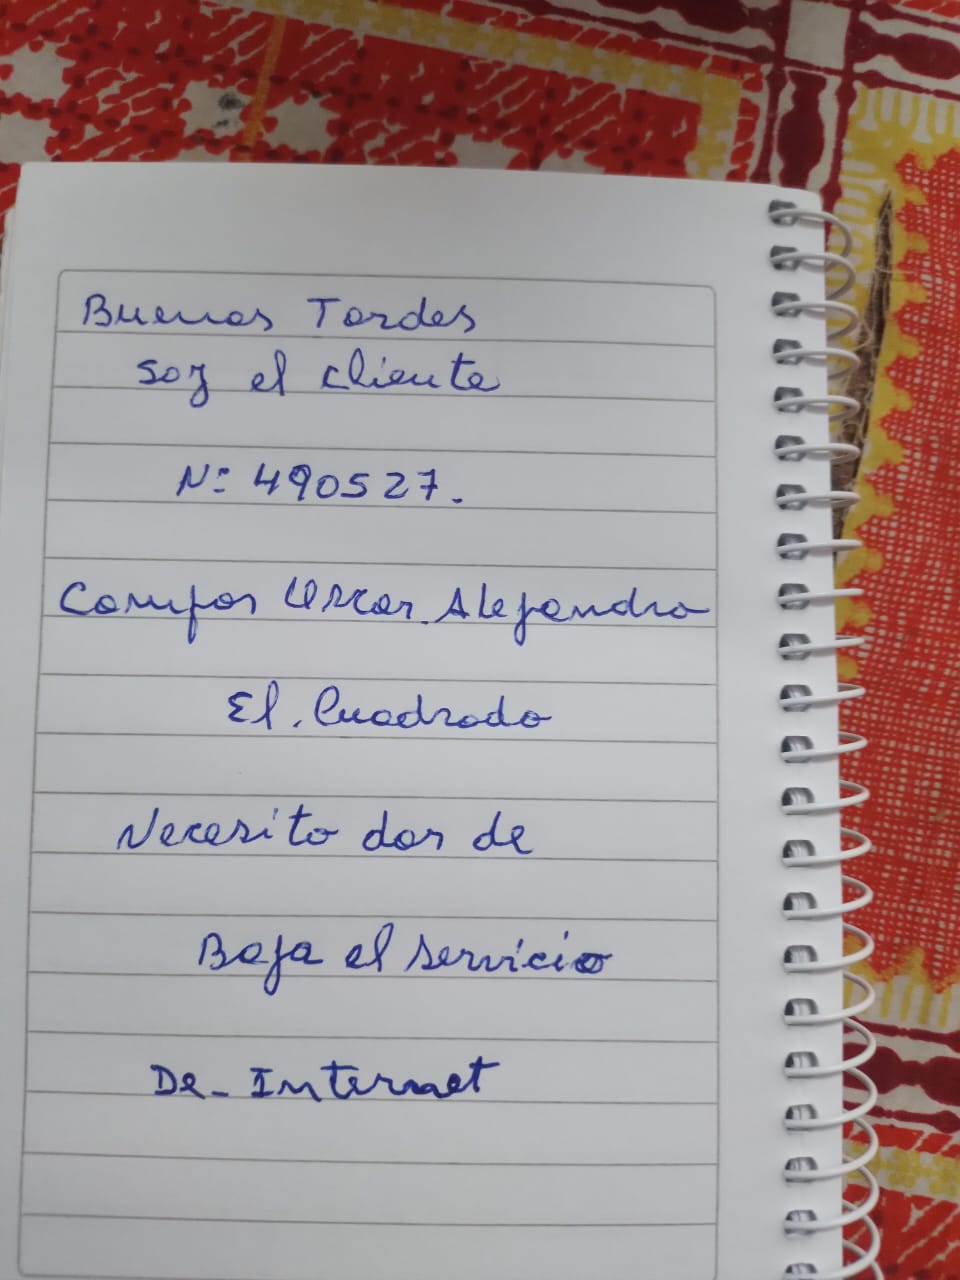 Buenas Tardes
soy el cliente
N: 490527.
Campos Oscar. Alejandro
El. Cuadrado
Necesito dar de
Baja el servicio
De- Internet